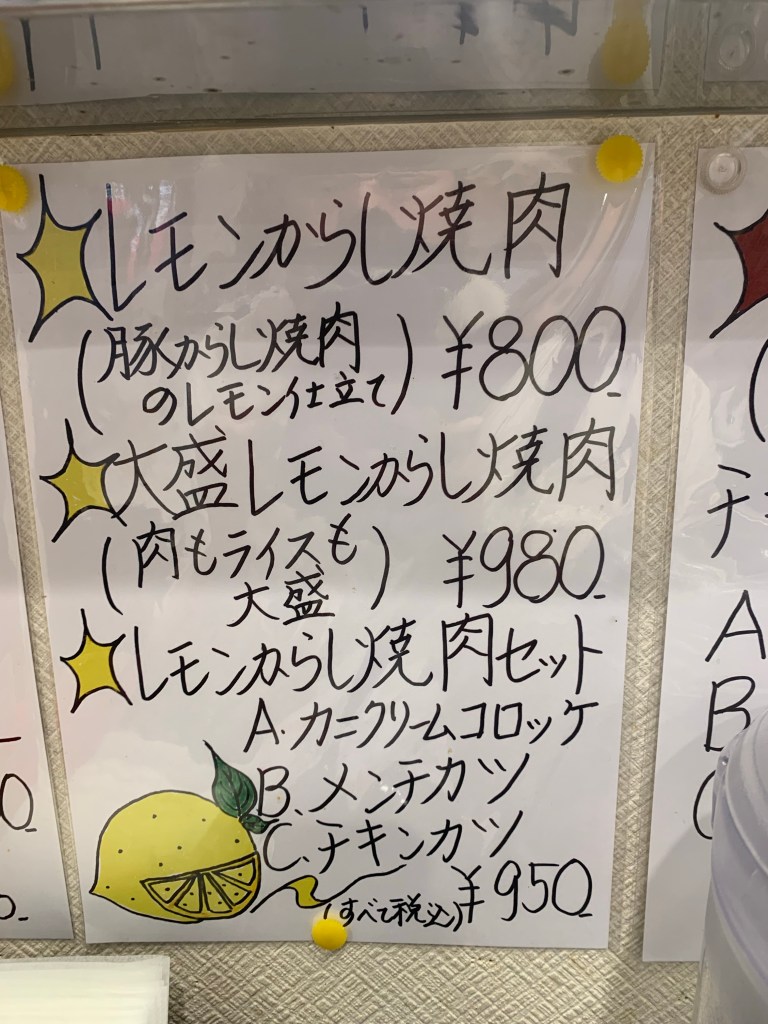 レモンからし焼肉
(豚からし焼肉
のレモン仕立て) ¥800-
大盛レモンからし焼肉
(肉もライスも
大盛) ¥980-
レモンからし焼肉セット
A.カニクリームコロッケ
B.メンチカツ
C.チキンカツ
(すべて税込) ¥950-
チ
A
B